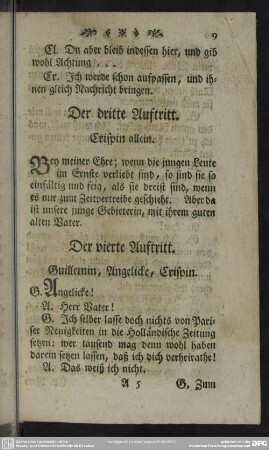 9
Cl. Du aber bleib indessen hier, und gib
wohl Achtung . . .
Cr. Ich werde schon aufpassen, und ih-
nen gleich Nachricht bringen.
Der dritte Auftritt.
Crispin allein.
Bey meiner Ehre; wenn die jungen Leute
im Ernste verliebt sind, so sind sie so
einfältig und feig, als sie dreist sind, wenn
es nur zum Zeitvertreibe geschieht. Aber da
ist unsere junge Gebieterin, mit ihrem guten
alten Vater.
Der vierte Auftritt.
Guillemin, Angelicke, Crispin.
G. Angelicke!
A. Herr Vater!
G. Ich selber lasse doch nichts von Pari-
ser Neuigkeiten in die Holländische Zeitung
setzen: wer tausend mag denn wohl haben
darein setzen lassen, daß ich dich verheirathe!
A. Das weiß ich nicht.
A 5 G. Zum